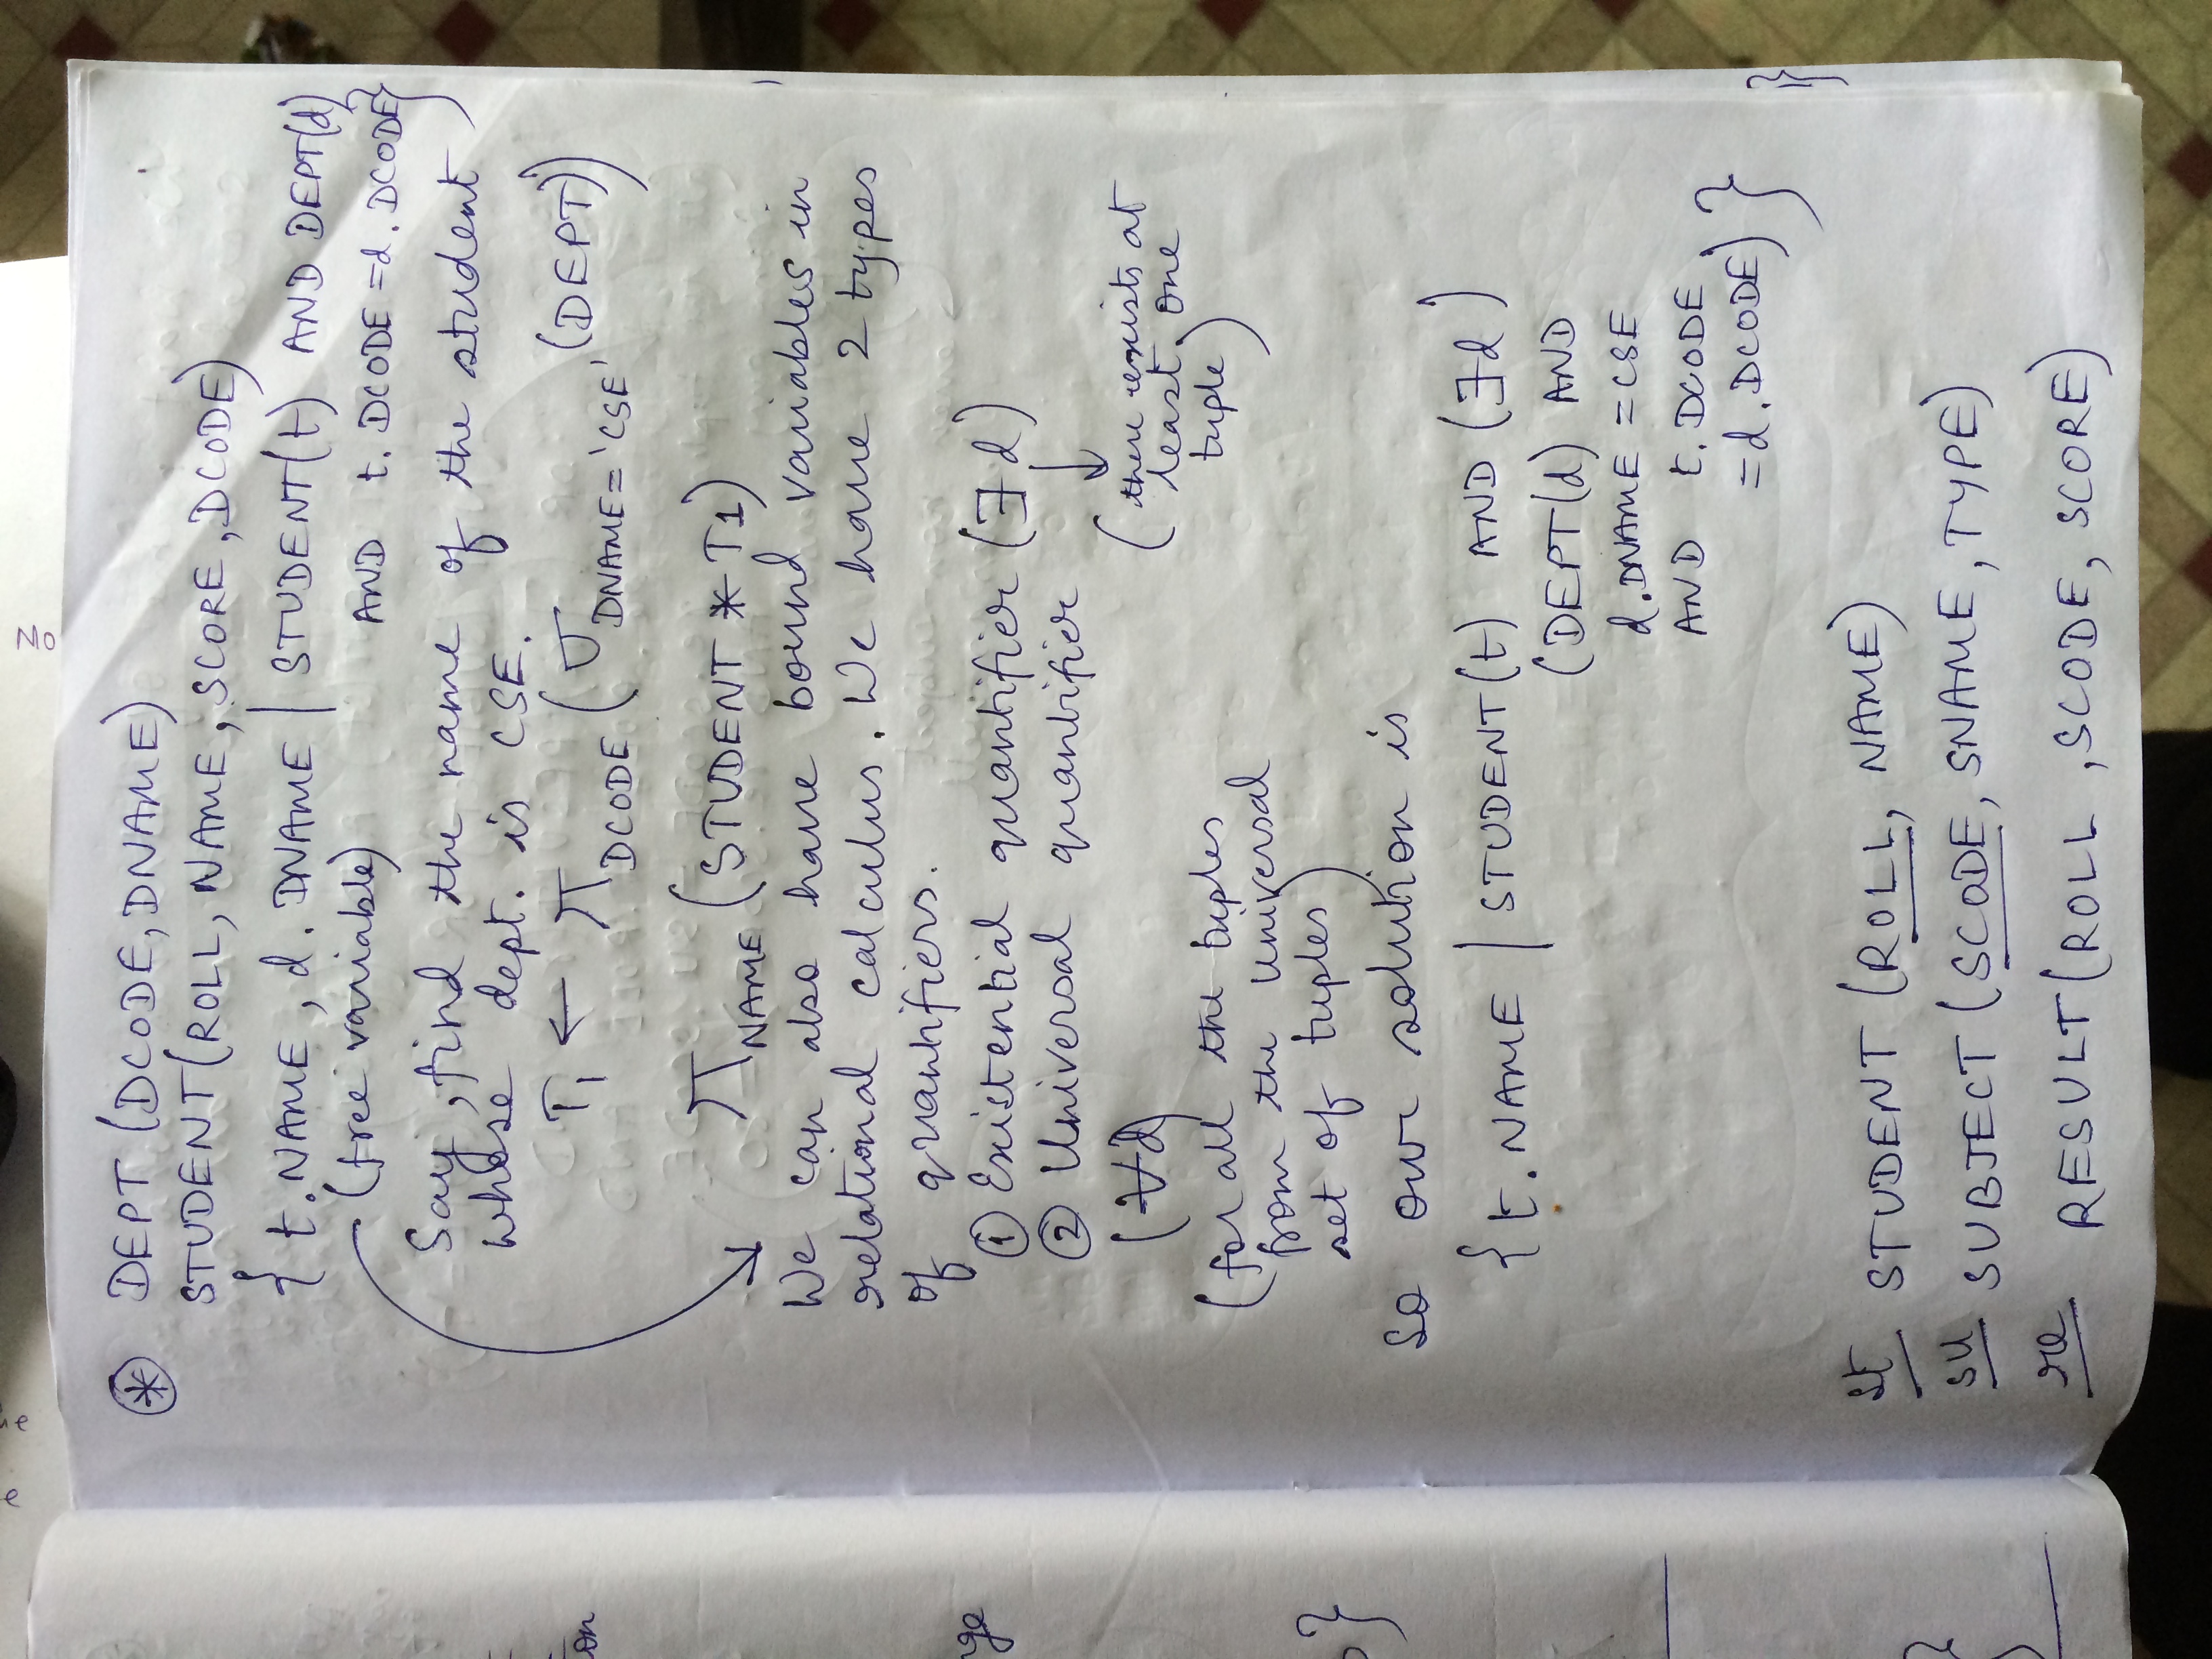 Mo
⊛ DEPT (DCODE, DNAME)
STUDENT(ROLL, NAME, SCORE, DCODE)
{ t.NAME, d. DNAME | STUDENT(t) AND DEPT(d)
(free variable) AND t. DCODE = d. DCODE }
Say, find the name of the student
whose dept. is CSE.
T1 ← π DCODE (σ DNAME = 'CSE' (DEPT))
π NAME (STUDENT * T1)
We can also have bound variables in
relational calculus. We have 2 types
of quantifiers.
① Existential quantifier (∃d)
② Universal quantifier
(∀d)
(there exists at
least one
tuple)
(for all the tuples
from the universal
set of tuples)
So our solution is
{ t. NAME | STUDENT(t) AND (∃d)
(DEPT(d) AND
d. DNAME = CSE
AND t. DCODE
= d. DCODE) }
st STUDENT (ROLL, NAME)
su SUBJECT (SCODE, SNAME, TYPE)
re RESULT (ROLL, SCODE, SCORE)
on
nge
}
}
}